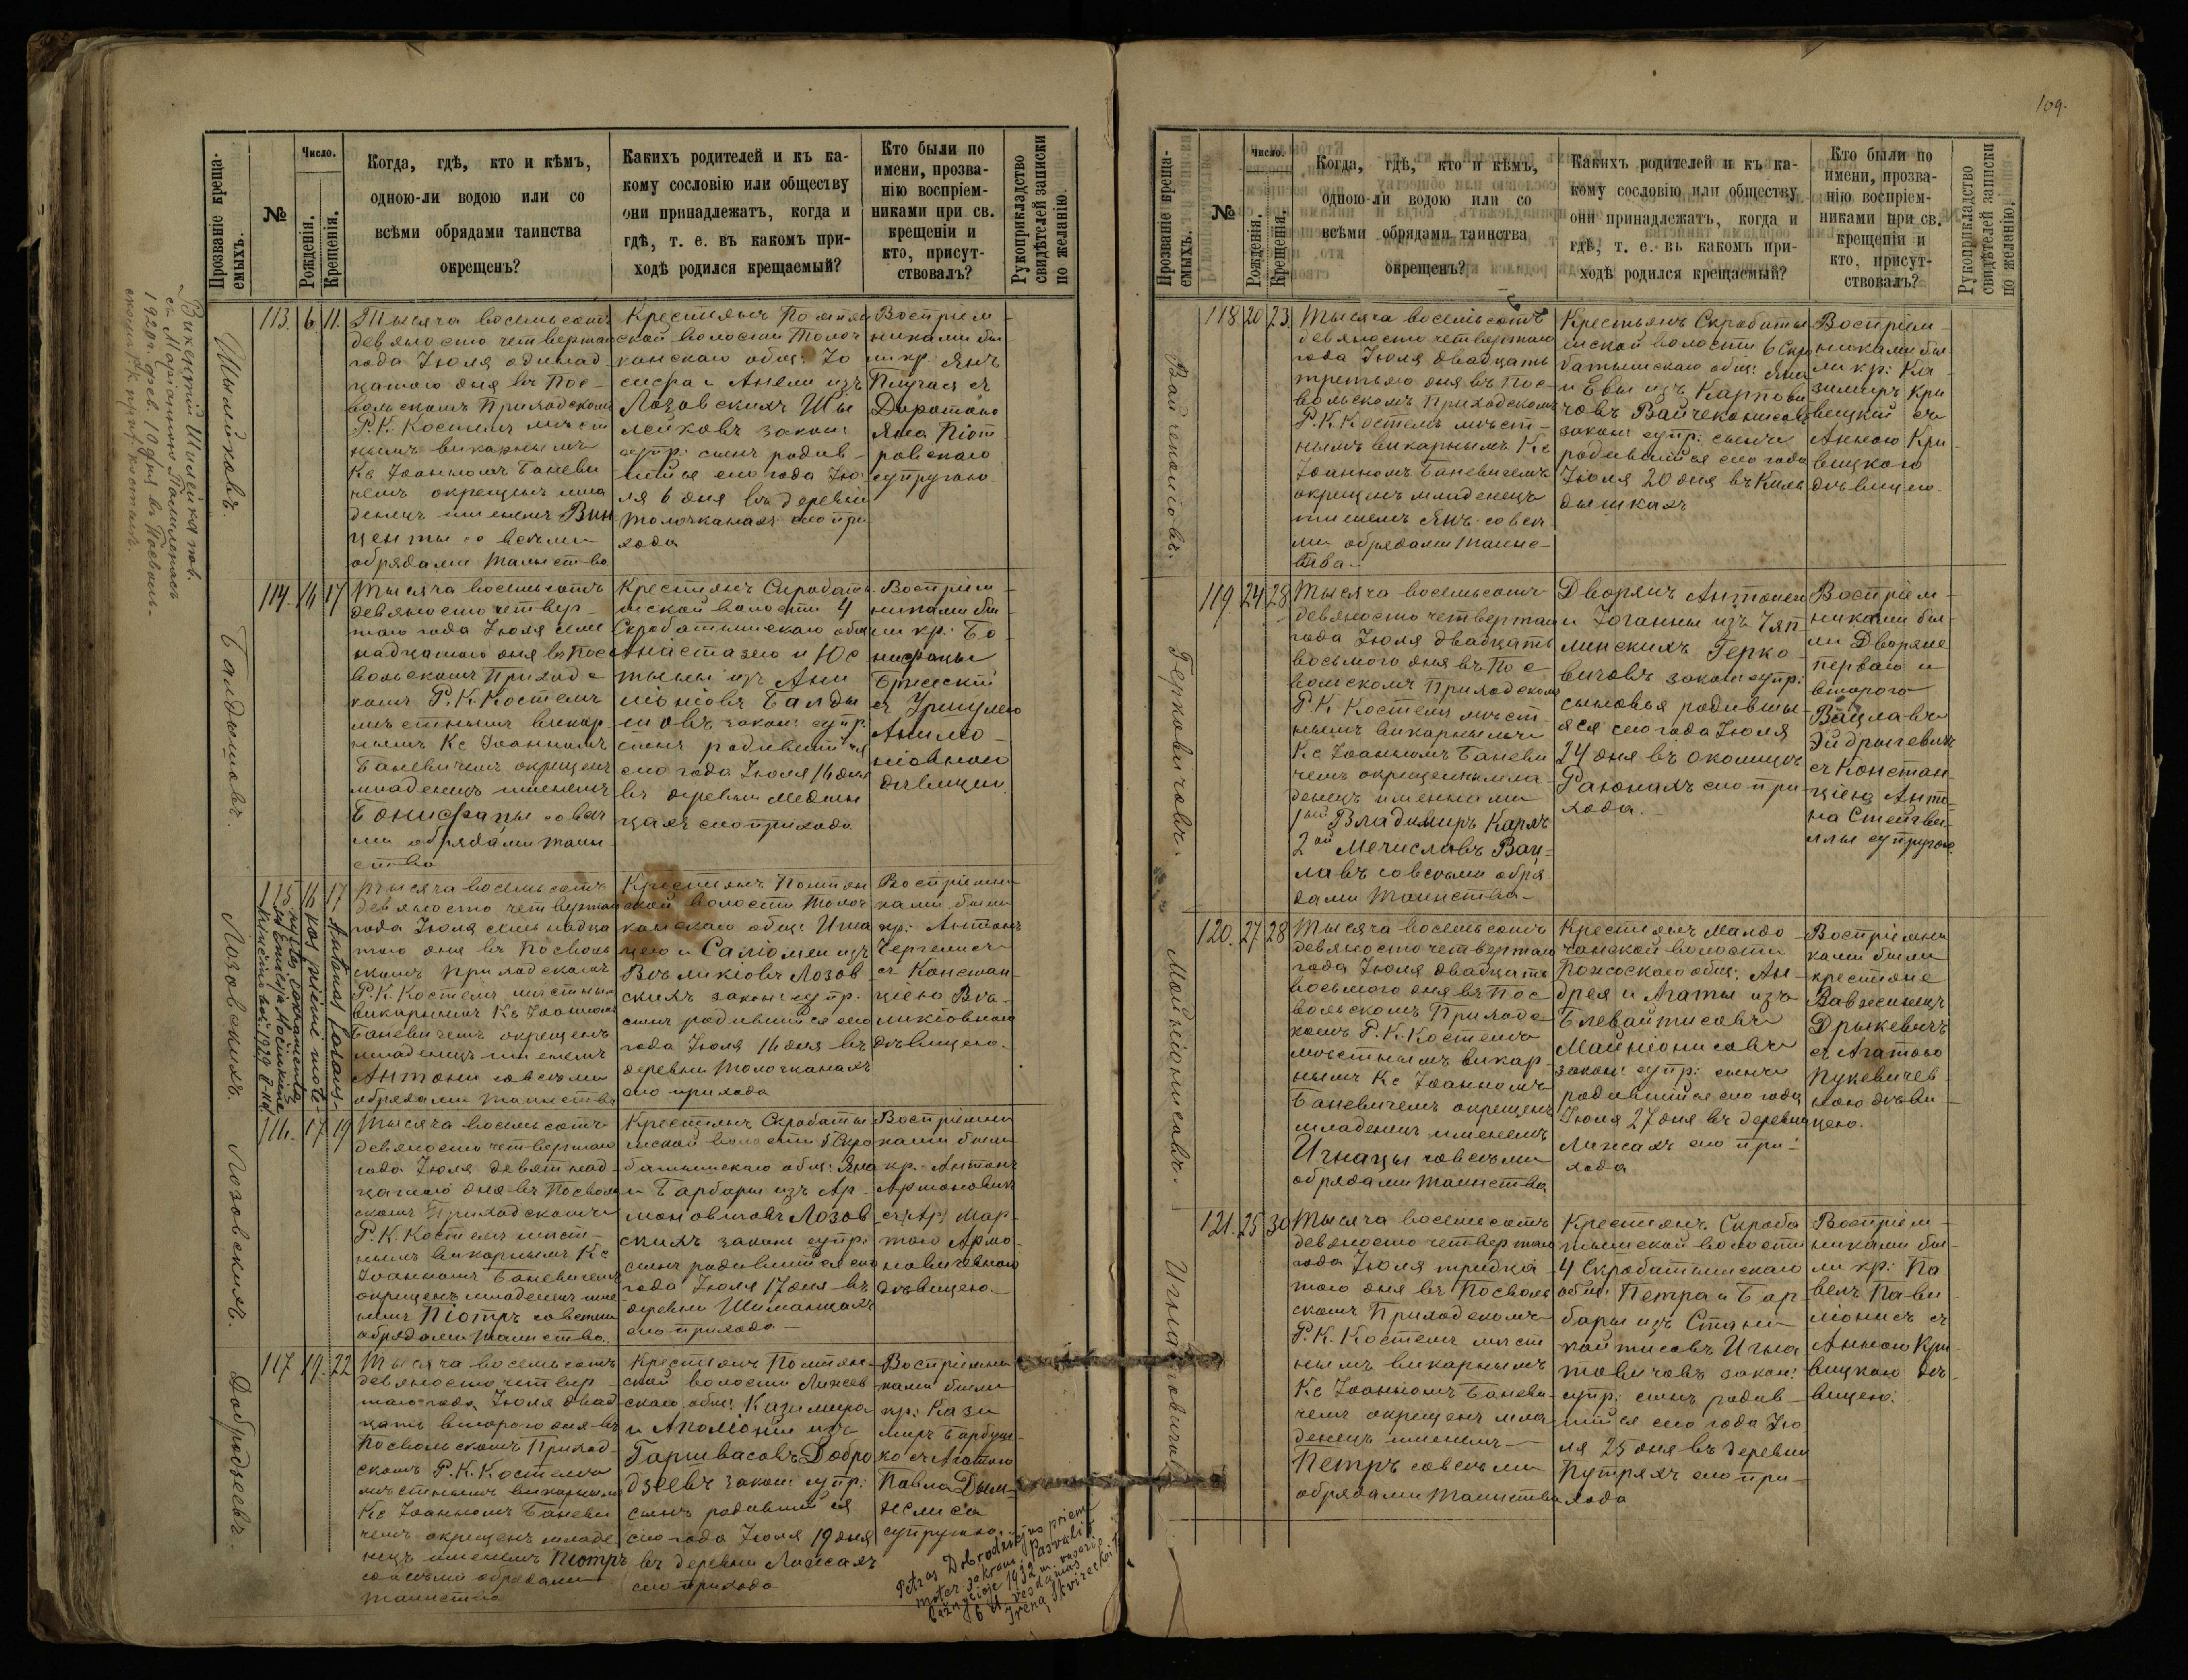 109.
Прозваніе креща-
емыхъ.
№
Число.
Рожденія.
Крещенія.
Когда, гдѣ, кто и кѣмъ,
одною-ли водою или со
всѣми обрядами таинства
окрещенъ?
Какихъ родителей и къ ка-
кому сословію или обществу
они принадлежатъ, когда и
гдѣ, т. е. въ какомъ при-
ходѣ родился крещаемый?
Кто были по
имени, прозва-
нію воспріем-
никами при св.
крещеніи и
кто, присут-
ствовалъ?
Рукоприкладство
свидѣтелей записки
по желанію.
Викентій Шилейко пов.
съ Маріанною
1920 г. фев. 10 дня въ Посволь-
скомъ Р.К. приход. костелѣ.
Шылейковъ.
113. 6 11.
Тысяча восемьсотъ
девяносто четвертаго
года Іюля одинад-
цатого дня въ Пос-
вольскомъ Приходскомъ
Р.К. Костелѣ мѣст
нымъ викарнымъ
Кс Іоанномъ Баневи
чемъ окрещенъ мла
денецъ именемъ Вин
центы со всѣми
обрядами таинства
Крестьянъ Помпян
ской волости Толоч
канскаго общ: Іо
сифа и Анели изъ
Лозовскихъ Шы
лейковъ закон:
супр: сынъ родив-
шійся сего года Ію
ля 6 дня въ деревни
Толочканахъ сего при
хода
Воспріем
никами бы
ли кр: Янъ
Плучасъ съ
Доротою
Яна Піот
ровскаго
супругою.
Балдышовъ.
114. 16 17
Тысяча восемьсотъ
девяносто четвер-
таго года Іюля сем
надцатого дня въ Пос
вольскомъ Приходс
комъ Р.К. Костелѣ
мѣстнымъ викар
нымъ Кс Іоанномъ
Баневичемъ окрещенъ
младенецъ именемъ
Бонифацы со всѣ
ми обрядами таин
ства
Крестьянъ Скробаты
шской волости 4
Скробатышскаго общ
Анастазего и Юс
тыны изъ
Балды
шовъ закон: супр:
сынъ родившійся
сего года Іюля 16 дня
въ деревни Медыни
цахъ сего прихода
Воспріем
никами бы
ли кр: Бо
нифацы
съ Уршулею
дѣвицею.
Лозовскихъ.
115 16 17
Тысяча восемьсотъ
девяносто четвертаго
года Іюля семьнадца
того дня въ Посволь
скомъ Приходскомъ
Р.К. Костелѣ мѣстны
викарнымъ Кс Іоанномъ
Баневичемъ окрещенъ
младенецъ именемъ
Антони со всѣми
обрядами таинства
Крестьянъ Помпян
ской волости Толоч
канскаго общ: Игна
цего и Саломеи изъ
Лозов
скихъ закон: супр:
сынъ родившійся сего
года Іюля 16 дня въ
деревни Толочканахъ
сего прихода
Воспріемни
ками были
кр: Антонъ
съ Констан-
ціею
дѣвицею.
Antanas Lozovs-
kas priėmė mote-
rystės sakramentą
su
1922
Лозовскихъ.
116. 17 19
Тысяча восемьсотъ
девяносто четвертаго
года Іюля девятнад-
цатого дня въ Посволь
скомъ Приходскомъ
Р.К. Костелѣ мѣст-
нымъ викарнымъ Кс
Іоанномъ Баневичемъ
окрещенъ младенецъ име
немъ Піотръ со всѣми
обрядами таинства.
Крестьянъ Скробаты
шской волости 5 Скро
батышскаго общ: Яна
и Барбары изъ Ар-
моновичовъ Лозов
скихъ закон супр:
сынъ родившійся сего
года Іюля 17 дня въ
деревни Шиманцахъ
сего прихода —
Воспріемни
ками были
кр: Антонъ
Армоновичъ
съ Мар-
тою Армо-
новичевною
дѣвицею.
Добродзеевъ.
117 19. 22
Тысяча восемьсотъ
девяносто четвер-
таго года Іюля двад
цать второго дня въ
Посвольскомъ Приход-
скомъ Р.К. Костелѣ
мѣстнымъ викарнымъ
Кс Іоанномъ Баневи
чемъ окрещенъ младе
нецъ именемъ Піотръ
со всѣми обрядами
таинства
Крестьянъ Помпян-
ской волости
скаго общ: Казимира
и Аполоніи изъ
Добро
дзеевъ закон супр:
сынъ родившійся
сего года Іюля 19 дня
въ деревни
сего прихода
Воспріемни
ками были
кр: Кази
миръ
съ Агатою
Павла
супругою.
Petras Dobrodziejus priėmė
moter. sakram. Pasvalio
bažnyčioje 1932 m. vasario
6 d. vesdamas
Ireną Skvireckaitę
Прозваніе креща-
емыхъ.
№
Число.
Рожденія.
Крещенія.
Когда, гдѣ, кто и кѣмъ,
одною-ли водою или со
всѣми обрядами таинства
окрещенъ?
Какихъ родителей и къ ка-
кому сословію или обществу
они принадлежатъ, когда и
гдѣ, т. е. въ какомъ при-
ходѣ родился крещаемый?
Кто были по
имени, прозва-
нію воспріем-
никами при св.
крещеніи и
кто, присут-
ствовалъ?
Рукоприкладство
свидѣтелей записки
по желанію.
Вайчеконисовъ.
118 20 23
Тысяча восемьсотъ
девяносто четвертаго
года Іюля двадцать
третьяго дня въ Пос-
вольскомъ Приходскомъ
Р.К. Костелѣ мѣст-
нымъ викарнымъ Кс
Іоанномъ Баневичемъ
окрещенъ младенецъ
именемъ Янъ со всѣ
ми обрядами таинс-
тва.
Крестьянъ Скробаты
шской волости 6 Скро
батышскаго общ: Яна
и Евы изъ Карпови
човъ Вайчеконисовъ
закон: супр: сынъ
родившійся сего года
Іюля 20 дня въ Киль
дышкахъ
Воспріем-
никами бы
ли кр: Ка-
зимиръ Кри
вицкій съ
Анною Кри-
вицкою
дѣвицею.
Герковичовъ.
119. 24 28
Тысяча восемьсотъ
девяносто четвертаго
года Іюля двадцать
восьмого дня въ Пос
вольскомъ Приходскомъ
Р.К. Костелѣ мѣст
нымъ викарнымъ
Кс Іоанномъ Баневи
чемъ окрещены мла-
денецъ именами
1ый Владимиръ Каряъ
2ой Мечиславъ Вац-
лавъ со всѣми обря
дами таинства —
Дворянъ Антонея
и Іоганны изъ Чап
линскихъ Герко-
вичовъ закон супр:
сыновья родившы-
яся сего года Іюля
24 дня въ околицѣ
Раюнахъ сего при
хода.
Воспріем-
никами бы-
ли Дворяне
перваго и
второго
Вацлавъ
съ Констан-
ціею Анто-
на
супругою.
Майніонисовъ.
120. 27 28
Тысяча восемьсотъ
девяносто четвертаго
года Іюля двадцать
восьмого дня въ Пос
вольскомъ Приходс
комъ Р.К. Костелѣ
мѣстнымъ викар
нымъ Кс Іоанномъ
Баневичемъ окрещенъ
младенецъ именемъ
Игнацы со всѣми
обрядами таинства
Крестьянъ Малдо
чанской волости
общ: Ан-
дрея и Агаты изъ
Блевайтисовъ
Майніонисовъ
закон: супр: сынъ
родившійся сего года
Іюля 27 дня въ деревни
сего при-
хода
Воспріемни
ками были
крестьяне
Вавжинецъ
Дрыжевичъ
съ Агатою
Пукевичев-
ною дѣви-
цею.
Игнатовичовъ
121. 25 30
Тысяча восемьсотъ
девяносто четвертаго
года Іюля тридца-
того дня въ Посволь
скомъ Приходскомъ
Р.К. Костелѣ мѣст
нымъ викарнымъ
Кс Іоанномъ Баневи-
чемъ окрещенъ мла-
денецъ именемъ —
Петръ со всѣми
обрядами таинства
Крестьянъ Скроба
тышской волости
4 Скробатышскаго
общ: Петра и Бар-
бары изъ Стани-
кайтисовъ Игна
товичовъ закон:
супр: сынъ родив-
шійся сего года Ію
ля 25 дня въ деревни
Путряхъ сего при-
хода
Воспріем-
никами бы-
ли кр: Па
велъ Пави
ліонисъ съ
Анною Кри-
вицкою дѣ-
вицею.